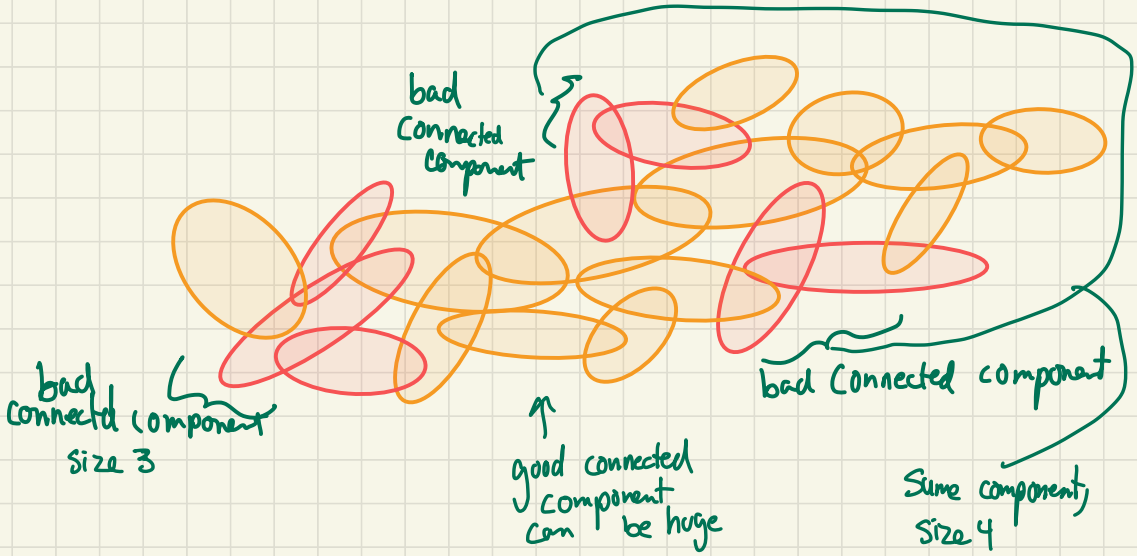 bad
connected
component
bad
connected component
size 3
good connected
component
can be huge
bad connected component
same component,
size 4